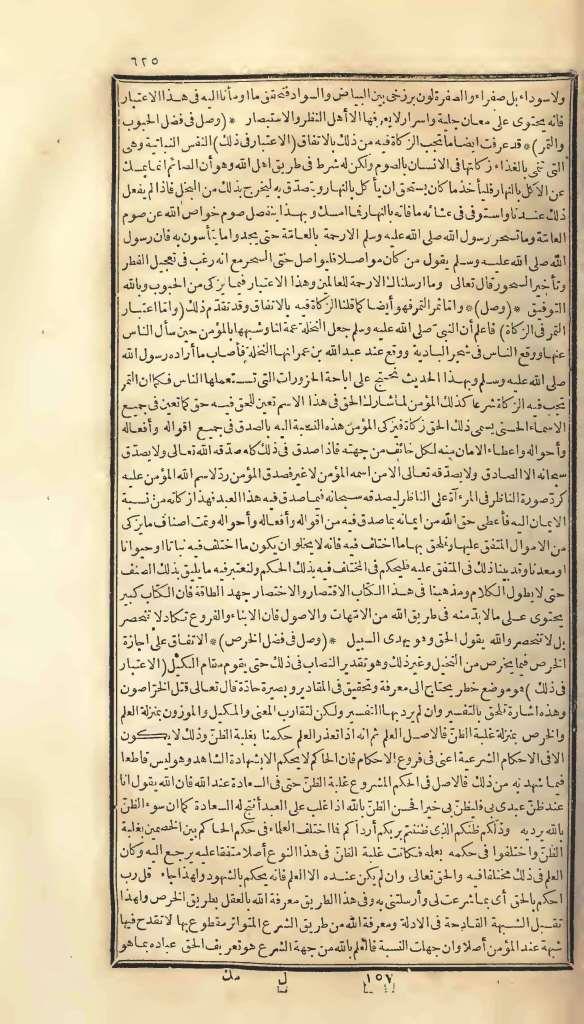 ٦٢٥
ولا سوداء بل صفراء والصفرة لون برزخى بين البياض والسواد فتحقق ما اومأنا اليه فى هذا الاعتبار
فانه يحتوى على معان جليلة واسرار لا يعرفها الا أهل النظر والاستبصار * (وصل فى فضل الحبوب
والتمر) * قد عرفت ايضا ما تجب الزكاة فيه من ذلك بالاتفاق (الاعتبار فى ذلك) النفس النباتية وهى
التى تنمى بالغذاء زكاتها فى الانسان بالصوم ولكن له شرط فى طريق اهل الله وهو أن الصائم انما يمسك
عن الاكل بالنهار فليأخذ ما كان يستحق ان يأكل بالنهار ويتصدق به ليخرج بذلك من البخل فاذا لم يفعل
ذلك عندنا واستوفى فى عشائه ما فاته بالنهار فما امسك وبهذا ينفصل صوم خواص الله عن صوم
العامة وما تسحر رسول الله صلى الله عليه وسلم الا رحمة بالعامة حتى يجدوا ما يتأسون به فان رسول
الله صلى الله عليه وسلم يقول من كان مواصلا فليواصل حتى السحر مع انه رغب فى تعجيل الفطر
وتأخير السحور قال تعالى وما ارسلناك الا رحمة للعالمين وهذا الاعتبار فيما يزكى من الحبوب وبالله
التوفيق * (وصل) * واما تمر التمر فهو أيضا كما قلنا الزكاة فيه بالاتفاق وقد تقدم ذلك (واما اعتبار
التمر فى الزكاة) فاعلم أن النبى صلى الله عليه وسلم جعل النخلة عمة لنا وشبهها بالمؤمن حين سأل الناس
عنها ووقع الناس فى شجر البادية ووقع عند عبد الله بن عمر انها النخلة فأصاب ما أراده رسول الله
صلى الله عليه وسلم وبهذا الحديث نحتج على اباحة الحزورات التى تستعملها الناس فكما ان التمر
تجب فيه الزكاة شرعا كذلك المؤمن لما شارك الحق فى هذا الاسم تعين للحق فيه حق كما تعين فى جميع
الاسماء الحسنى يسمى ذلك الحق زكاة فيزكى المؤمن هذه النسبة اليه بالصدق فى جميع اقواله وأفعاله
وأحواله واعطاء الامان منه لكل خائف من جهته فاذا صدق فى ذلك كله صدقه الله تعالى ولا يصدق
سبحانه الا الصادق ولا يصدقه تعالى الا من اسمه المؤمن لا غير فصدق المؤمن رد لاسم الله المؤمن عليه
كرد صورة الناظر فى المرءآة على الناظر ليصدقه سبحانه فيما صدق فيه هذا العبد فهذا زكاته من نسبة
الايمان اليه فأعطى حق الله من ايمانه بما صدق فيه من اقواله وأفعاله وأحواله وتمت اصناف ما يزكى
من الاموال المتفق عليها ونلحق بها ما اختلف فيه فانه لا يخلو ان يكون ما اختلف فيه نباتا او حيوانا
او معدنا وقد بينا ذلك فى المتفق عليه فليحكم فى المختلف فيه بذلك الحكم ولنعتبر فيه ما يليق بذلك الصنف
حتى لا يطول الكلام ومذهبنا فى هذا الكتاب الاقتصار والاختصار جهد الطاقة فان الكتاب كبير
يحتوى على ما لا بد منه فى طريق الله من الامهات والاصول فان الابناء والفروع تكاد لا تنحصر
بل لا تنحصر والله يقول الحق وهو يهدى السبيل * (وصل فى فضل الخرص) * الاتفاق على اجازة
الخرص فيما يخرص من النخيل وغير ذلك وهو تقدير النصاب فى ذلك حتى يقوم مقام الكيل (الاعتبار
فى ذلك) هو موضع خطر يحتاج الى معرفة وتحقيق فى المقادير وبصيرة حادة قال تعالى قتل الخراصون
وهذه اشارة تلحق بالتفسير وان لم يرد بها التفسير ولكن لتقارب المعنى والمكيل والموزون بمنزلة العلم
والخرص بمنزلة غلبة الظن فالاصل العلم ثم انه اذا تعذر العلم حكمنا بغلبة الظن وذلك لا يكون
الا فى الاحكام الشرعية اعنى فى فروع الاحكام فان الحاكم لا يحكم الا بشهادة الشاهد وهو ليس قاطعا
فيما شهد به من ذلك فالاصل فى الحكم المشروع غلبة الظن حتى فى السعادة عند الله فان الله يقول انا
عند ظن عبدى بى فليظن بى خيرا فحسن الظن بالله اذا غلب على العبد أنتج له السعادة كما ان سوء الظن
بالله يرديه وذلكم ظنكم الذى ظننتم بربكم أرداكم فما اختلف العلماء فى حكم الحاكم بين الخصمين بغلبة
الظن واختلفوا فى حكمه بعلمه فكانت غلبة الظن فى هذا النوع أصلا متفقا عليه يرجع اليه وكان
العلم فى ذلك مختلفا فيه والحق تعالى وان لم يكن عنده الا العلم فانه يحكم بالشهود ولهذا جاء قل رب
احكم بالحق أى بما شرعت لى وأرسلتنى به وفى هذا الطريق معرفة الله بالعقل بطريق الخرص ولهذا
تقبل الشبهة القادحة فى الادلة ومعرفة الله من طريق الشرع المتواتر مقطوع بها لا تقدح فيها
شبهة عند المؤمن أصلا وان جهلت النسبة فالعلم بالله من جهة الشرع هو تعريف الحق عباده بما هو
١٥٧ ل مك